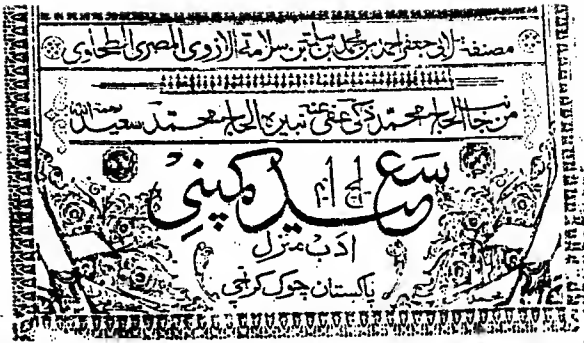 مصنفة لابی جعفر احمد بن محمد بن سلمة بن سلامة الازدی المصری الطحاوی
من جانب الحاج محمد زکی عفی عنہ نبیرہ الحاج محمد سعید رحمة اللہ
ایچ ایم سعید کمپنی
ادب منزل
پاکستان چوک کراچی